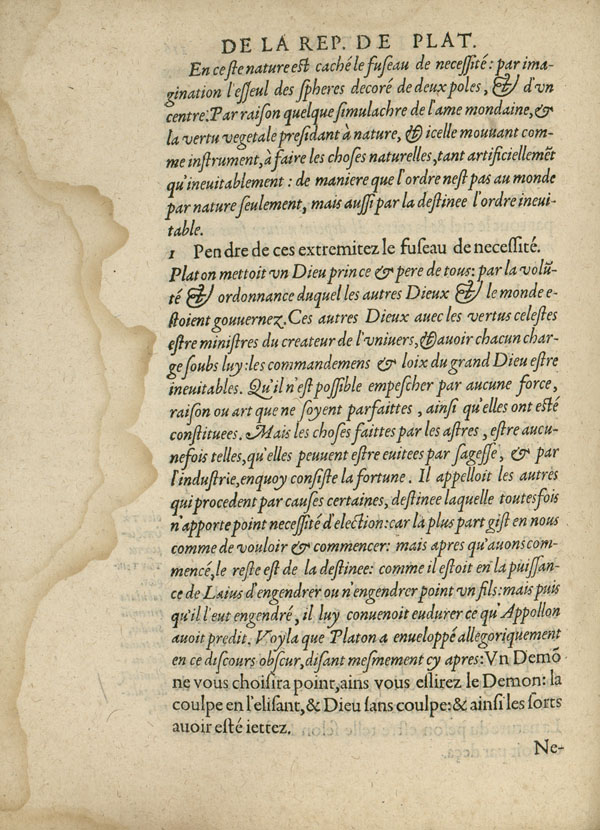 DE LA REP. DE PLAT.
En ceste nature est caché le fuseau de necessité : par ima-
gination l'esseul des spheres decoré de deux poles, & d'vn
centre. Par raison quelque simulachre de l'ame mondaine, &
la vertu vegetale presidant à nature, & icelle mouuant com-
me instrument, à faire les choses naturelles, tant artificiellemēt
qu'ineuitablement : de maniere que l'ordre nest pas au monde
par nature seulement, mais aussi par la destinee l'ordre ineui-
table.
1 Pendre de ces extremitez le fuseau de necessité.
Platon mettoit vn Dieu prince & pere de tous: par la volū-
té & ordonnance duquel les autres Dieux & le monde e-
stoient gouuernez. Ces autres Dieux auec les vertus celestes
estre ministres du createur de l'vniuers, & auoir chacun char-
ge soubs luy: les commandemens & loix du grand Dieu estre
ineuitables. Qu'il n'est possible empescher par aucune force,
raison ou art que ne soyent parfaittes, ainsi qu'elles ont esté
constituees. Mais les choses faittes par les astres, estre aucu-
nefois telles, qu'elles peuuent estre euitees par sagesse, & par
l'industrie, enquoy consiste la fortune. Il appelloit les autres
qui procedent par causes certaines, destinee laquelle toutesfois
n'apporte point necessité d'election: car la plus part gist en nous
comme de vouloir & commencer: mais apres qu'auons com-
mencé, le reste est de la destinee: comme il estoit en la puissan-
ce de Laius d'engendrer ou n'engendrer point vn fils: mais puis
qu'il l'eut engendré, il luy conuenoit eudurer ce qu'Appollon
auoit predit. Voyla que Platon a enueloppé allegoriquement
en ce discours obscur, disant mesmement cy apres: Vn Demō
ne vous choisira point, ains vous eslirez le Demon: la
coulpe en l'elisant, & Dieu sans coulpe: & ainsi les sorts
auoir esté iettez.
Ne-